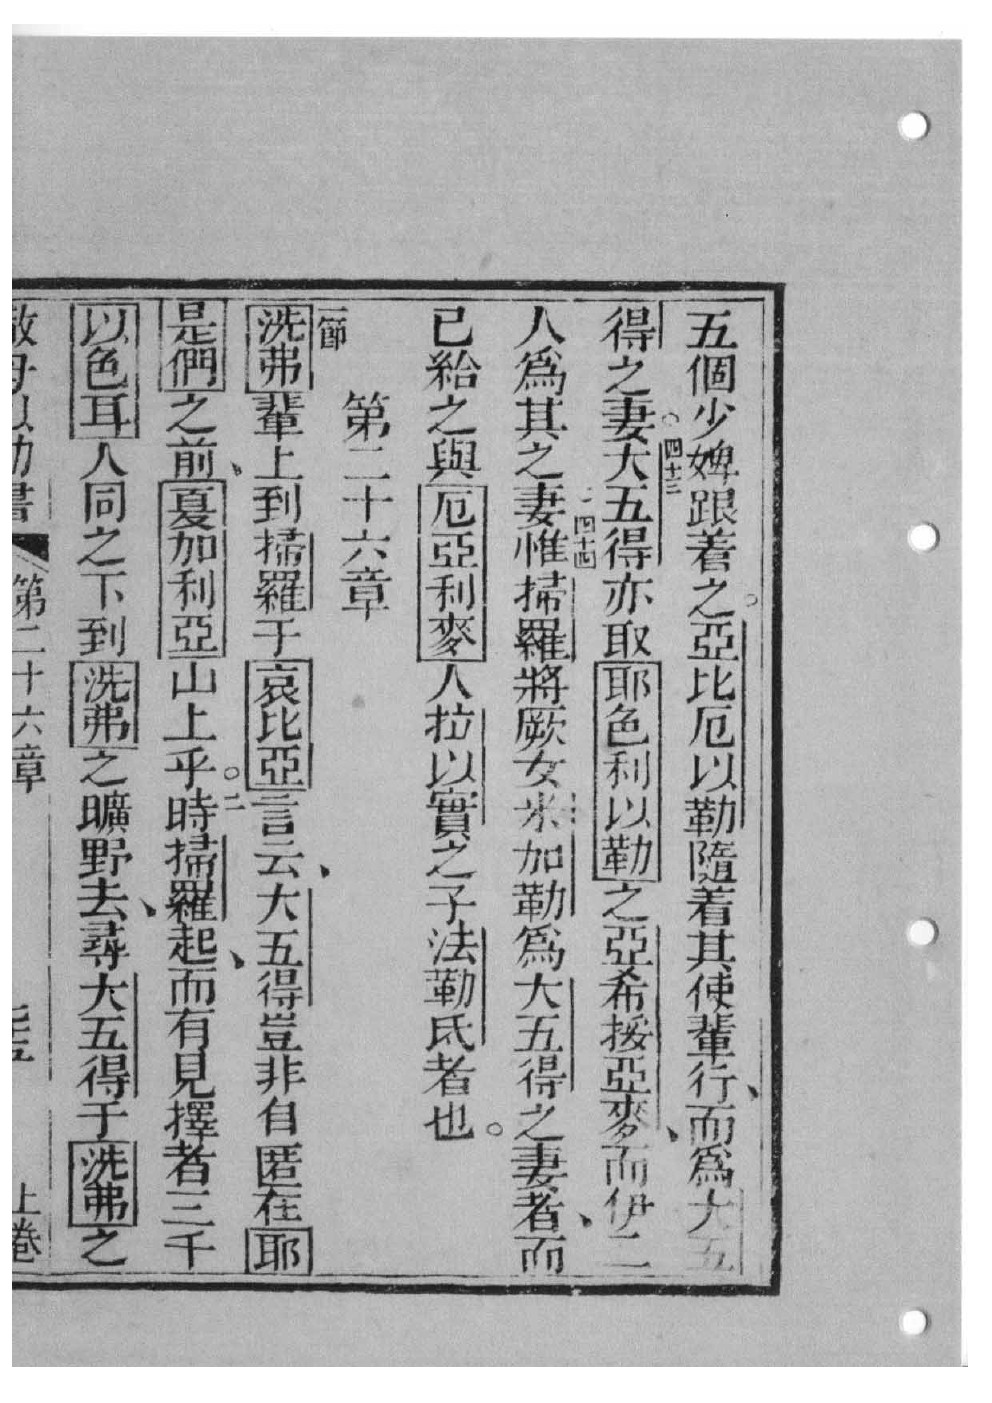 五個少婢跟着之。亞比厄以勒隨着其使輩行、而爲大五
得之妻。四十三大五得亦取耶色利以勒之亞希挼亞麥、而伊二
人爲其之妻四十四惟掃羅將厥女米加勒爲大五得之妻者、而
已給之與厄亞利麥人拉以實之子法勒氐者也。
第二十六章
一節洗弗輩上到掃羅于哀比亞言云、大五得豈非自匿在耶
是們之前、夏加利亞山上乎。二時掃羅起、而有見擇者三千
以色耳人同之下到洗弗之曠野去、尋大五得于洗弗之
母以勒書 第二十六章 上卷